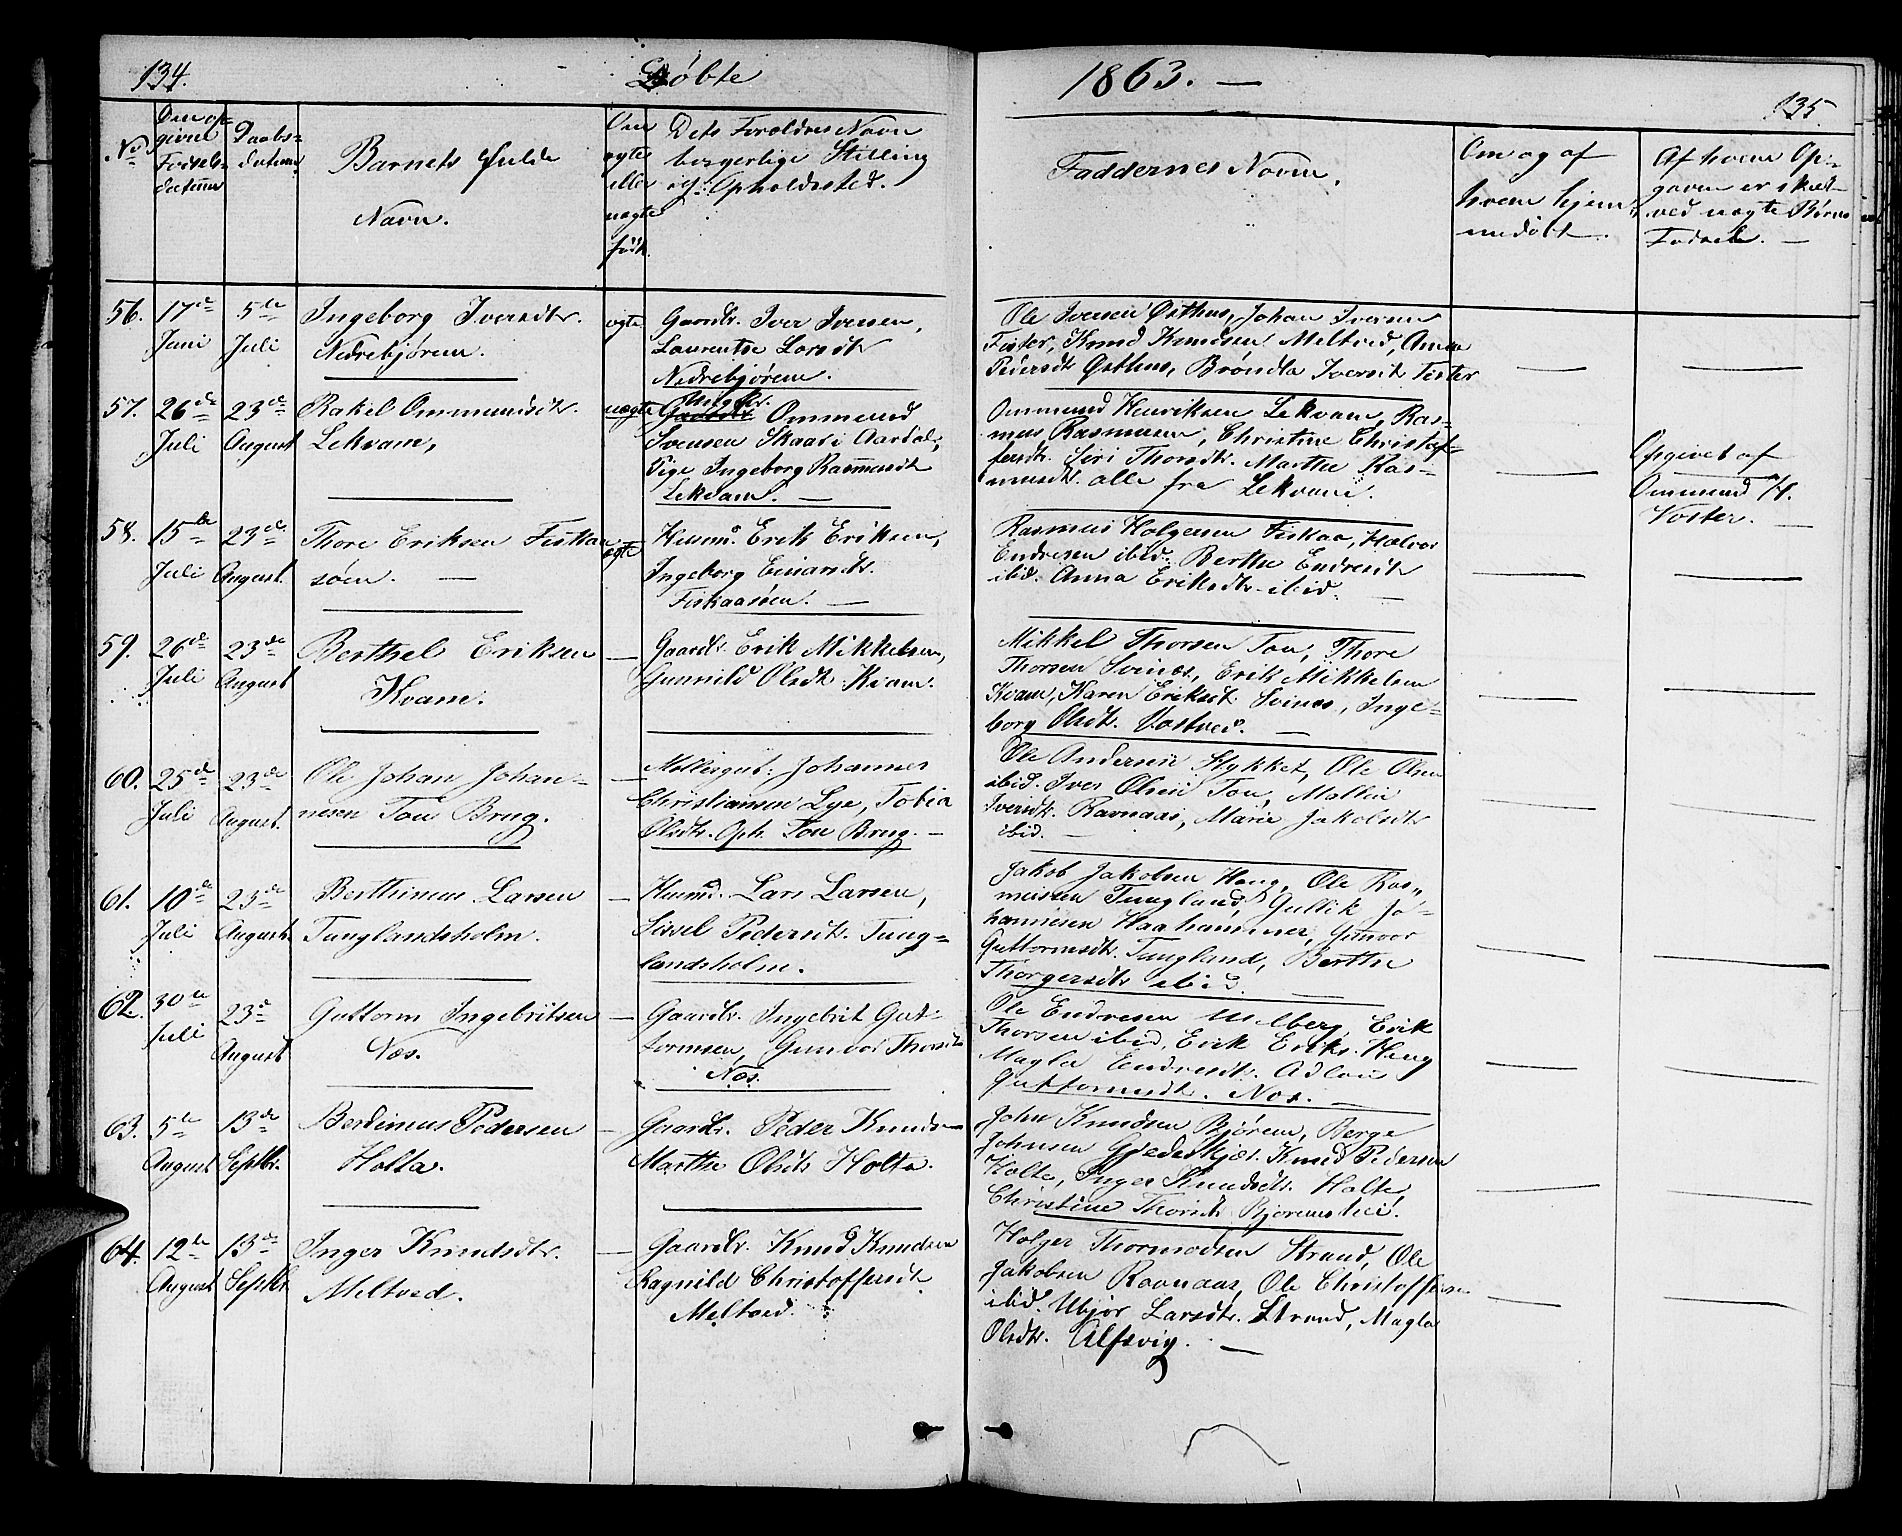 134.
Døbte
1863. —
135.
No
Den op-
givne
Fødsels-
datum
Daabs-
datum
Barnets fulde
Navn.
Om
ægte
eller
uægte
født.
Dets Forældres Navn
borgerlige Stilling
og Opholdssted.
Faddernes Navn.
Om og af
hvem hjem-
medøbt.
Af hvem Op-
gaven er skeet
ved uægte Børns
Fødsel. —
56.
17de
Juni
5te
Juli
Ingeborg Iversdtr.
Nedrebjørem.
ægte
Gaardbr. Iver Iversen,
Laurentse Larsdtr
Nedrebjørem.
Ole Iversen Østhus, Johan Iversen
Fister, Knud Knudsen Meltved, Anna
Pedersdtr Østhus, Brøndla Iversdtr Fister
57.
26de
Juli
23de
August
Rakel Ommundsdtr.
Lekvam,
uægte
Ungkr.
Ommund
Svensen Skaar i Aardal,
Pige Ingeborg Rasmusdtr
Lekvam. —
Ommund Henriksen Lekvam, Ras-
mus Rasmusen, Christine Christof-
fersdtr. Siri Thorsdtr. Marthe Ras-
musdtr. alle fra Lekvam.
Opgivet af
Ommund H.
Voster. —
58.
15de
Juli
23de
August
Thore Eriksen Fiskaa-
søen. —
ægte
Huusmd. Erik Eriksen,
Ingeborg Einarsdtr.
Fiskaasøen. —
Rasmus Holgersen Fiskaa, Halvor
Endresen ibid. Berthe Endresdtr
ibid. Anna Eriksdtr ibid. —
59.
26de
Juli
23de
August
Berthel Eriksen
Kvam.
—
Gaardbr. Erik Mikkelsen,
Gunnild Olsdtr Kvam.
Mikkel Thorsen Tou, Thore
Thorsen Svines, Erik Mikkelsen
Kvam, Karen Eriksdt Svines, Inge-
borg Olsdtr. Vostved. —
60.
25de
Juli
23de
August.
Ole Johan Johan-
nesen Tou Brug.
—
Møllersgut. Johannes
Christiansen Lye, Tobia
Olsdtr. Oph. Tou Brug. —
Ole Andersen Stykket, Ole Olsen
ibid. Iver Olsen Tou, Mallin
Iversdtr. Ravnaas, Marie Jakobsdtr
ibid. —
61.
10de
Juli
23de
August.
Berthinus Larsen
Tunglandsholm.
—
Huusmd. Lars Larsen,
Sissel Pedersdtr. Tung-
landsholm.
Jakob Jakobsen Haug, Ole Ras-
mussen Tungland, Gullik Jo-
hannesen Haahammer, Gunvor
Guttormsdtr. Tungland, Berthe
Thorgersdtr ibid. —
62.
30te
Juli
23de
August
Guttorm Ingebritsen
Næs.
—
Gaardbr. Ingebrit Gut-
tormsen, Gunvor Thorsdtr
Næs.
Ole Endresen Ulberg, Erik
Thorsen ibid, Erik Eriks. Haug
Magla Endresdtr.
Guttormsdtr. Næs. —
63.
5te
August
13de
Septbr.
Berdinus Pedersen
Holta.
—
Gaardbr. Peder Knudsen
Marthe Olsdtr Holta.
John Knudsen Bjørem, Berge
Johnsen Gjedeskjær, Knud Pedersen
Holta, Inger Knudsdtr. Holte,
Christine Thorsdtr Bjørem
64.
12te
August
13de
Septbr
Inger Knudsdtr.
Meltved.
—
Gaardbr. Knud Knudsen
Ragnild Christoffersdtr
Meltved.
Holger Thormodsen Strand, Ole
Jakobsen Ravnaas, Ole Christoffersen
ibid. Ubjør Larsdtr. Strand, Magla
Olsdtr. Alfsvig. —